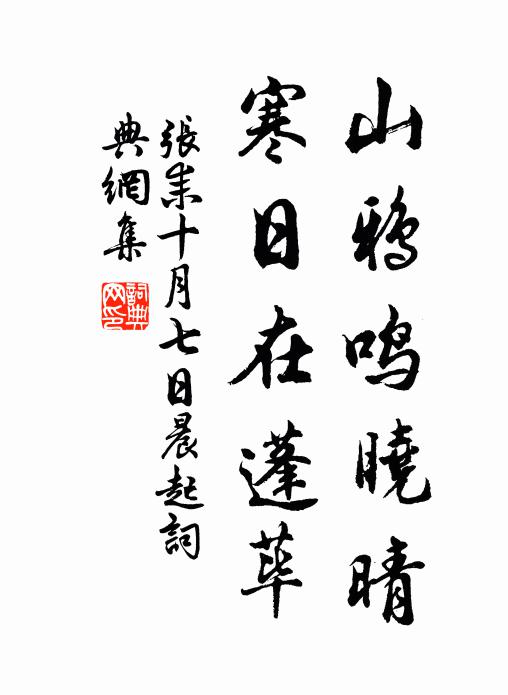 山鴉鳴曉晴
寒日在蓬蓽
張耒十月七日晨起詞
典網集
詞典網印